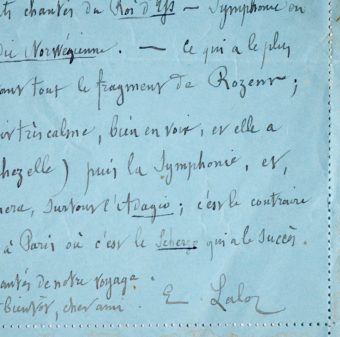 ts chantés du Roi d'Ys — Symphonie en
die Norwégienne. — ce qui a le plus
tout le fragment de Rozenn ;
très calme, bien en voix, et elle a
chez elle) puis la Symphonie, et,
surtout l'Adagio ; c'est le contraire
à Paris où c'est le Scherzo qui a le succès.
de notre voyage.
bientôt, cher ami. E. Lalo